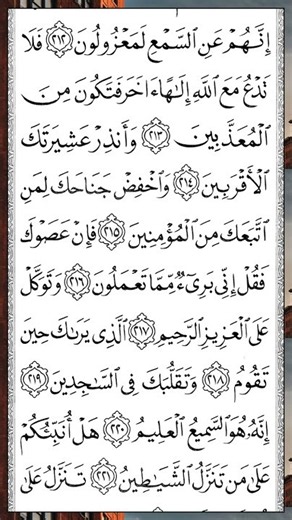 إِنَّهُمْ عَنِ ٱلسَّمْعِ لَمَعْزُولُونَ ٢١٢ فَلَا
تَدْعُ مَعَ ٱللَّهِ إِلَٰهًا ءَاخَرَ فَتَكُونَ مِنَ
ٱلْمُعَذَّبِينَ ٢١٣ وَأَنذِرْ عَشِيرَتَكَ
ٱلْأَقْرَبِينَ ٢١٤ وَٱخْفِضْ جَنَاحَكَ لِمَنِ
ٱتَّبَعَكَ مِنَ ٱلْمُؤْمِنِينَ ٢١٥ فَإِنْ عَصَوْكَ
فَقُلْ إِنِّى بَرِىٓءٌ مِّمَّا تَعْمَلُونَ ٢١٦ وَتَوَكَّلْ
عَلَى ٱلْعَزِيزِ ٱلرَّحِيمِ ٢١٧ ٱلَّذِى يَرَىٰكَ حِينَ
تَقُومُ ٢١٨ وَتَقَلُّبَكَ فِى ٱلسَّٰجِدِينَ ٢١٩
إِنَّهُۥ هُوَ ٱلسَّمِيعُ ٱلْعَلِيمُ ٢٢٠ هَلْ أُنَبِّئُكُمْ
عَلَىٰ مَن تَنَزَّلُ ٱلشَّيَٰطِينُ ٢٢١ تَنَزَّلُ عَلَىٰ